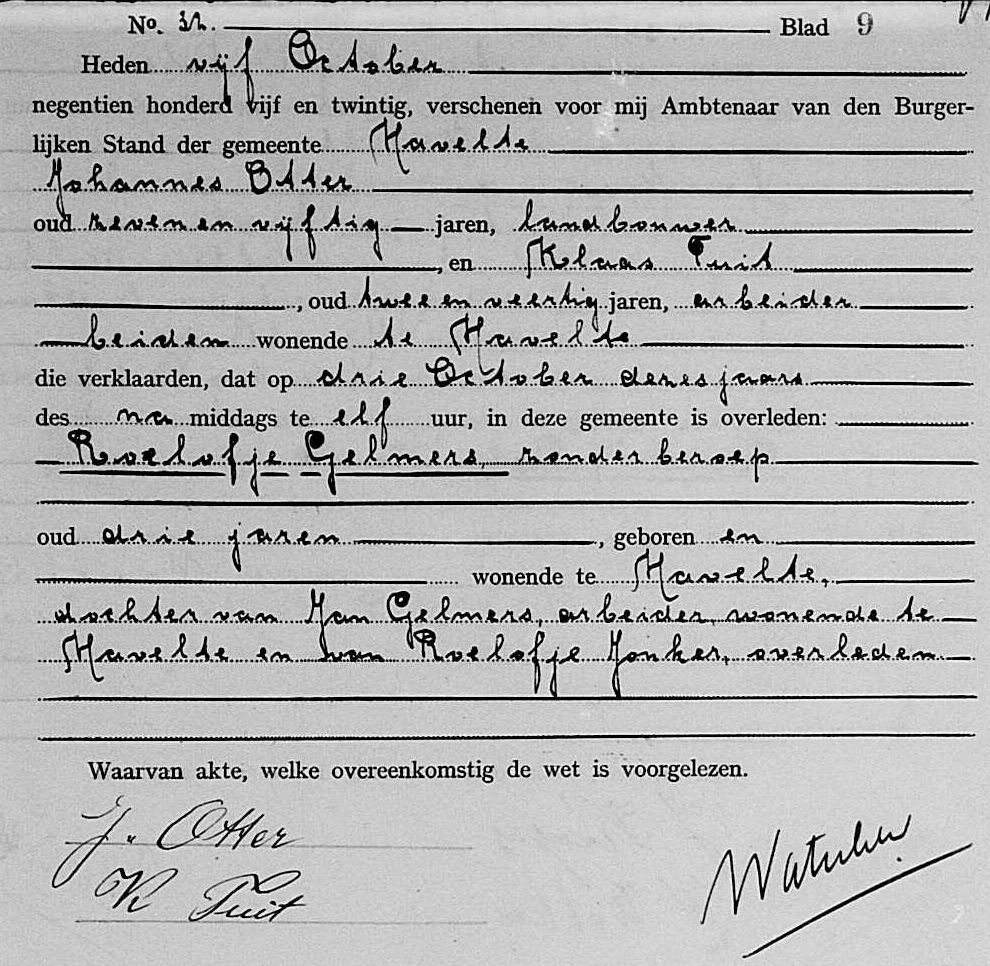 No. 32. Blad 9
Heden vijf October
negentien honderd vijf en twintig, verschenen voor mij Ambtenaar van den Burger-
lijken Stand der gemeente Havelte
Johannes Otter
oud zeven en vijftig jaren, landbouwer
, en Klaas Tuit
, oud twee en veertig jaren, arbeider
beiden wonende te Havelte
die verklaarden, dat op drie October dezes jaars
des na middags te elf uur, in deze gemeente is overleden:
Roelofje Gelmers, zonder beroep
oud drie jaren , geboren en
wonende te Havelte,
dochter van Jan Gelmers, arbeider, wonende te
Havelte en van Roelofje Jonker, overleden
Waarvan akte, welke overeenkomstig de wet is voorgelezen.
J. Otter
K Tuit